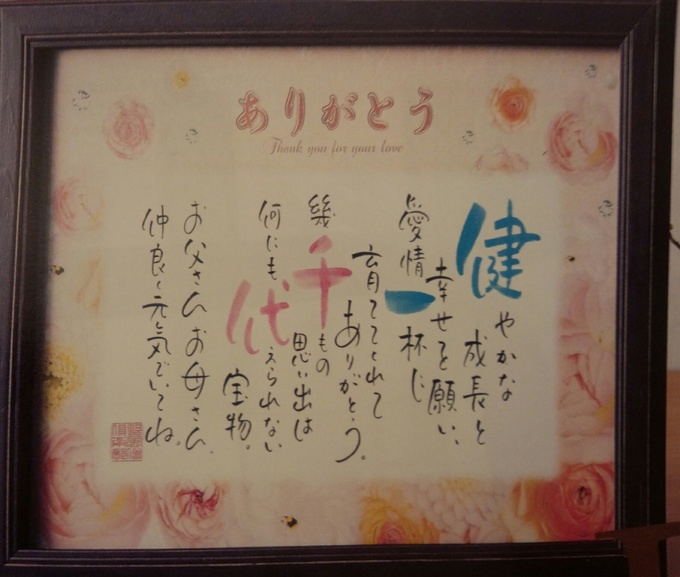 ありがとう
Thank you for your love
健やかな
成長と
幸せを願い、
愛情一杯に
育ててくれて
ありがとう。
幾千もの
思い出は
何にも代えられない
宝物。
お父さんお母さん、
仲良く元気でいてね。